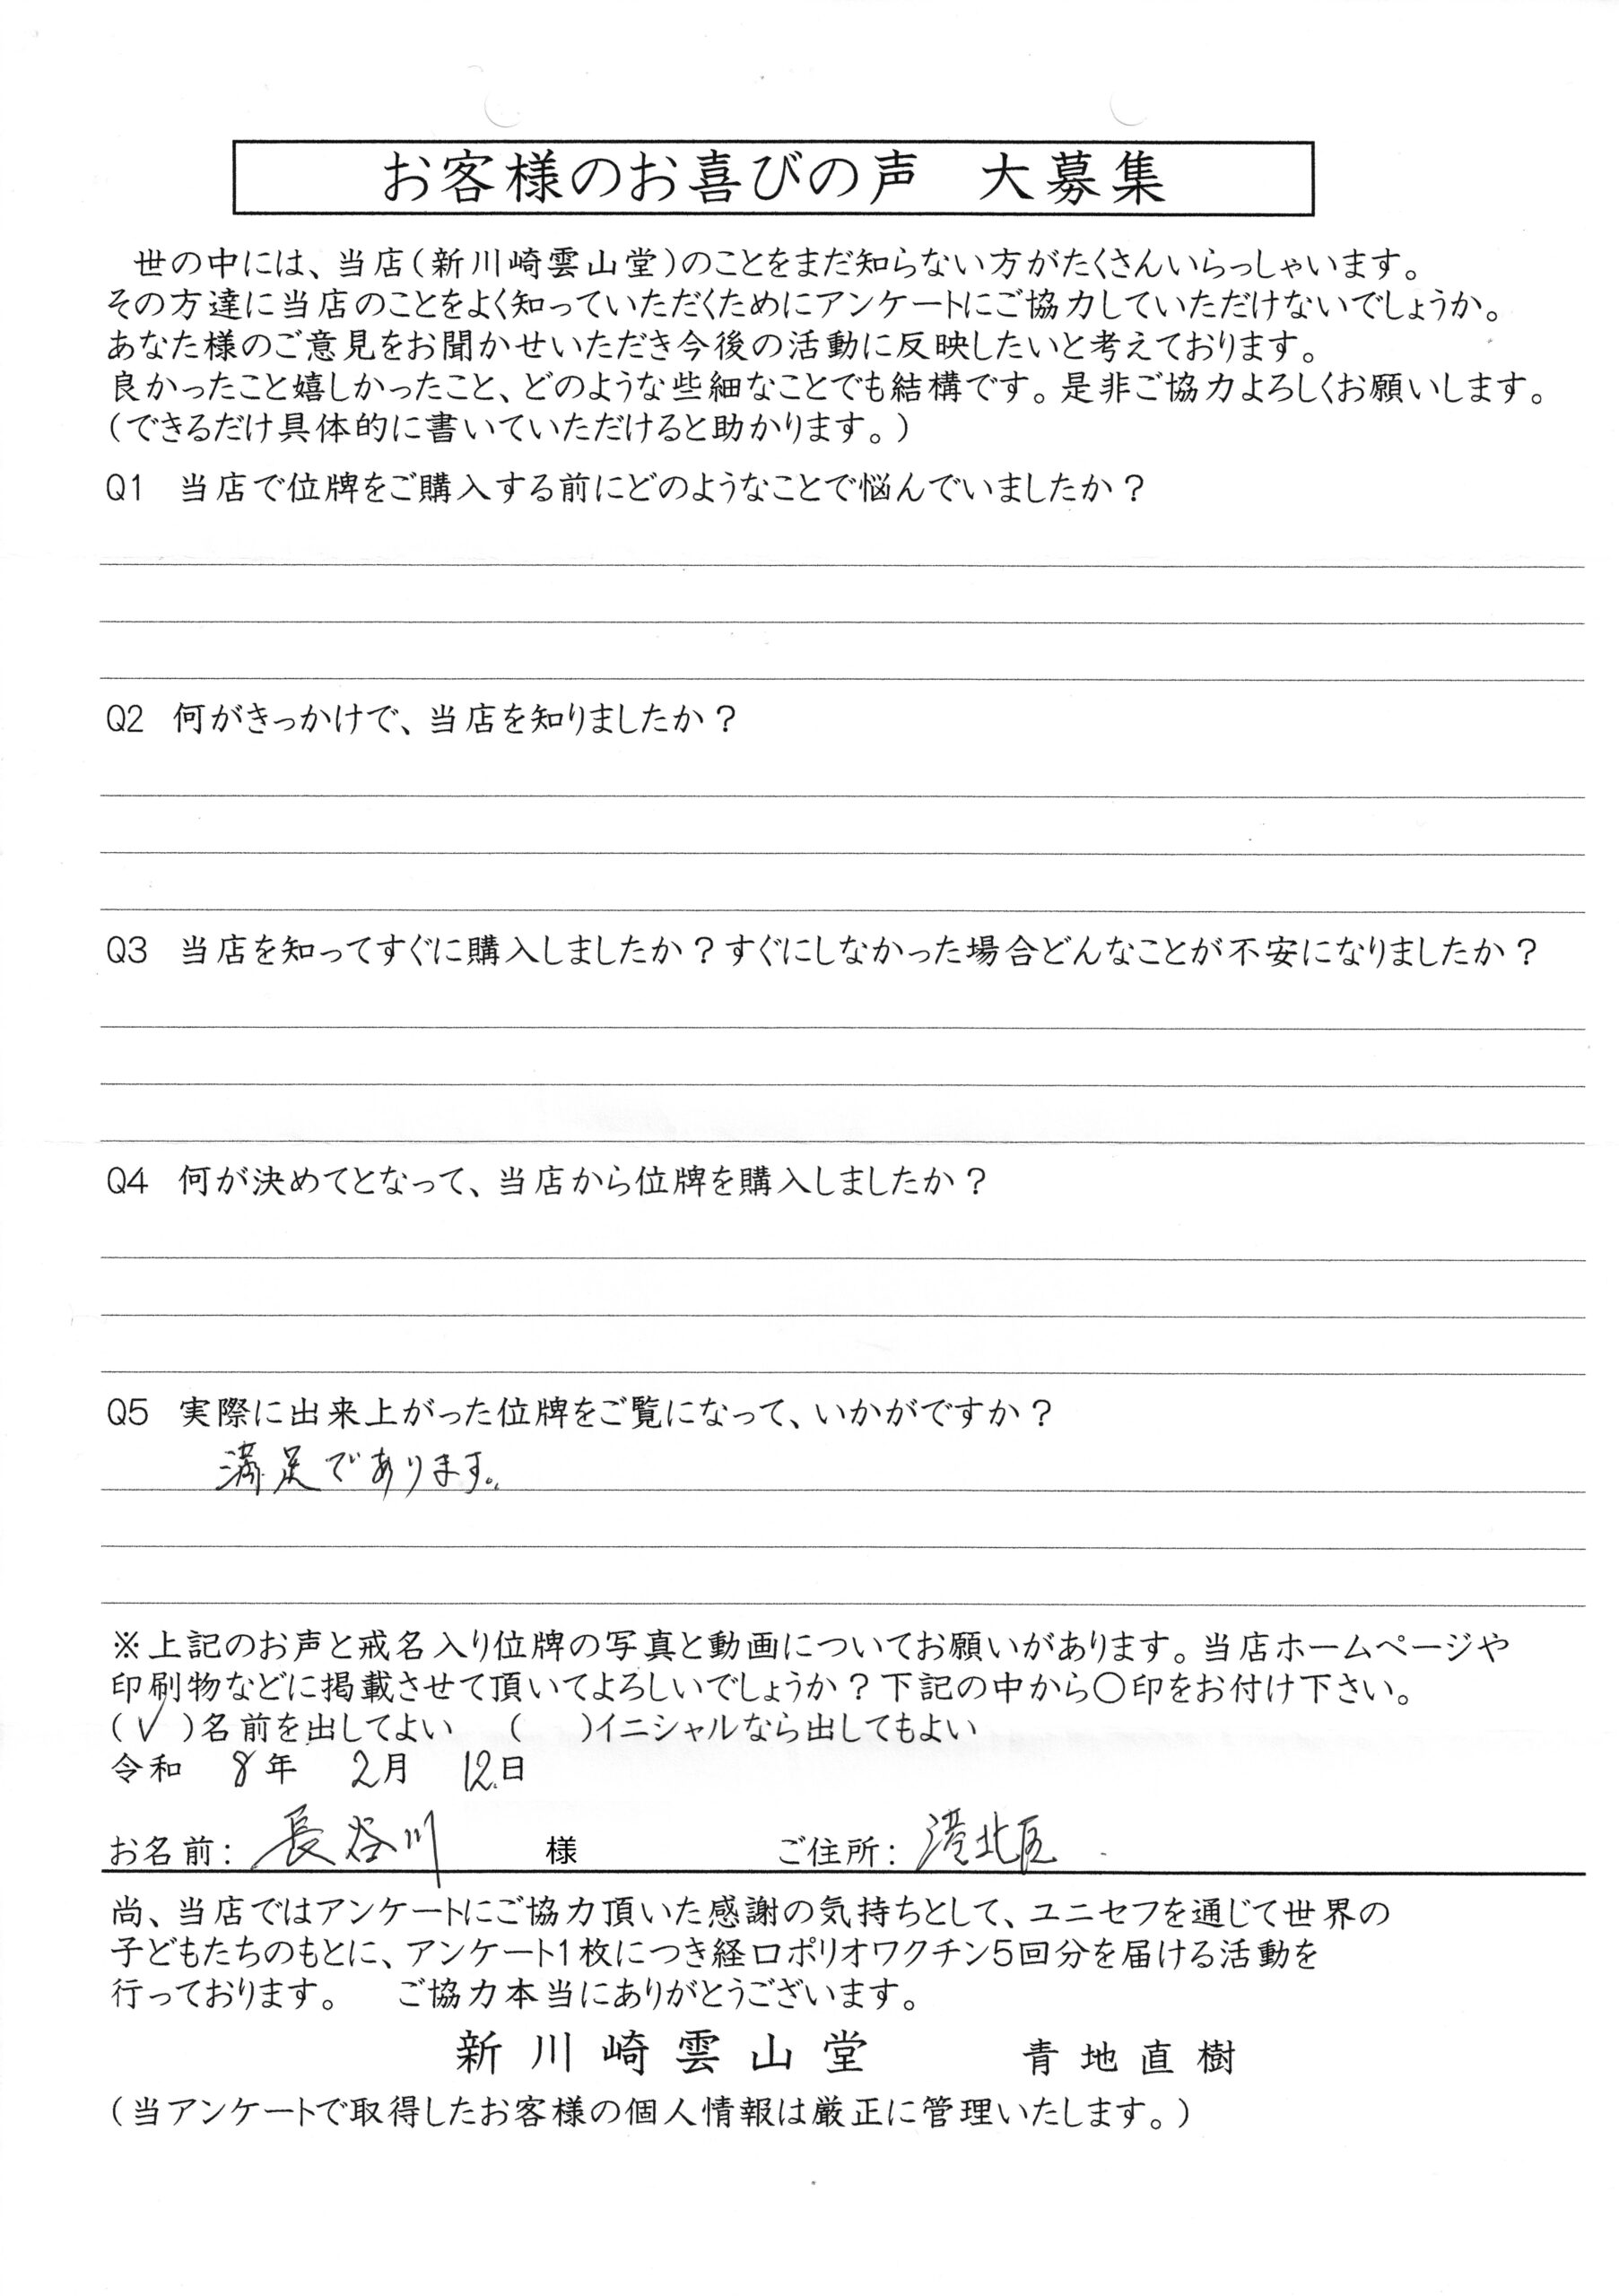 お客様のお喜びの声　大募集
世の中には、当店（新川崎雲山堂）のことをまだ知らない方がたくさんいらっしゃいます。
その方達に当店のことをよく知っていただくためにアンケートにご協力していただけないでしょうか。
あなた様のご意見をお聞かせいただき今後の活動に反映したいと考えております。
良かったこと嬉しかったこと、どのような些細なことでも結構です。是非ご協力よろしくお願いします。
（できるだけ具体的に書いていただけると助かります。）
Q1　当店で位牌をご購入する前にどのようなことで悩んでいましたか？
Q2　何がきっかけで、当店を知りましたか？
Q3　当店を知ってすぐに購入しましたか？すぐにしなかった場合どんなことが不安になりましたか？
Q4　何が決めてとなって、当店から位牌を購入しましたか？
Q5　実際に出来上がった位牌をご覧になって、いかがですか？
満足であります。
※上記のお声と戒名入り位牌の写真と動画についてお願いがあります。当店ホームページや
印刷物などに掲載させて頂いてよろしいでしょうか？下記の中から〇印をお付け下さい。
（✓）名前を出してよい　（　）イニシャルなら出してもよい
令和　8年　2月　12日
お名前：長谷川　様　ご住所：港北区
尚、当店ではアンケートにご協力頂いた感謝の気持ちとして、ユニセフを通じて世界の
子どもたちのもとに、アンケート1枚につき経口ポリオワクチン5回分を届ける活動を
行っております。　ご協力本当にありがとうございます。
新川崎雲山堂　青地直樹
（当アンケートで取得したお客様の個人情報は厳正に管理いたします。）